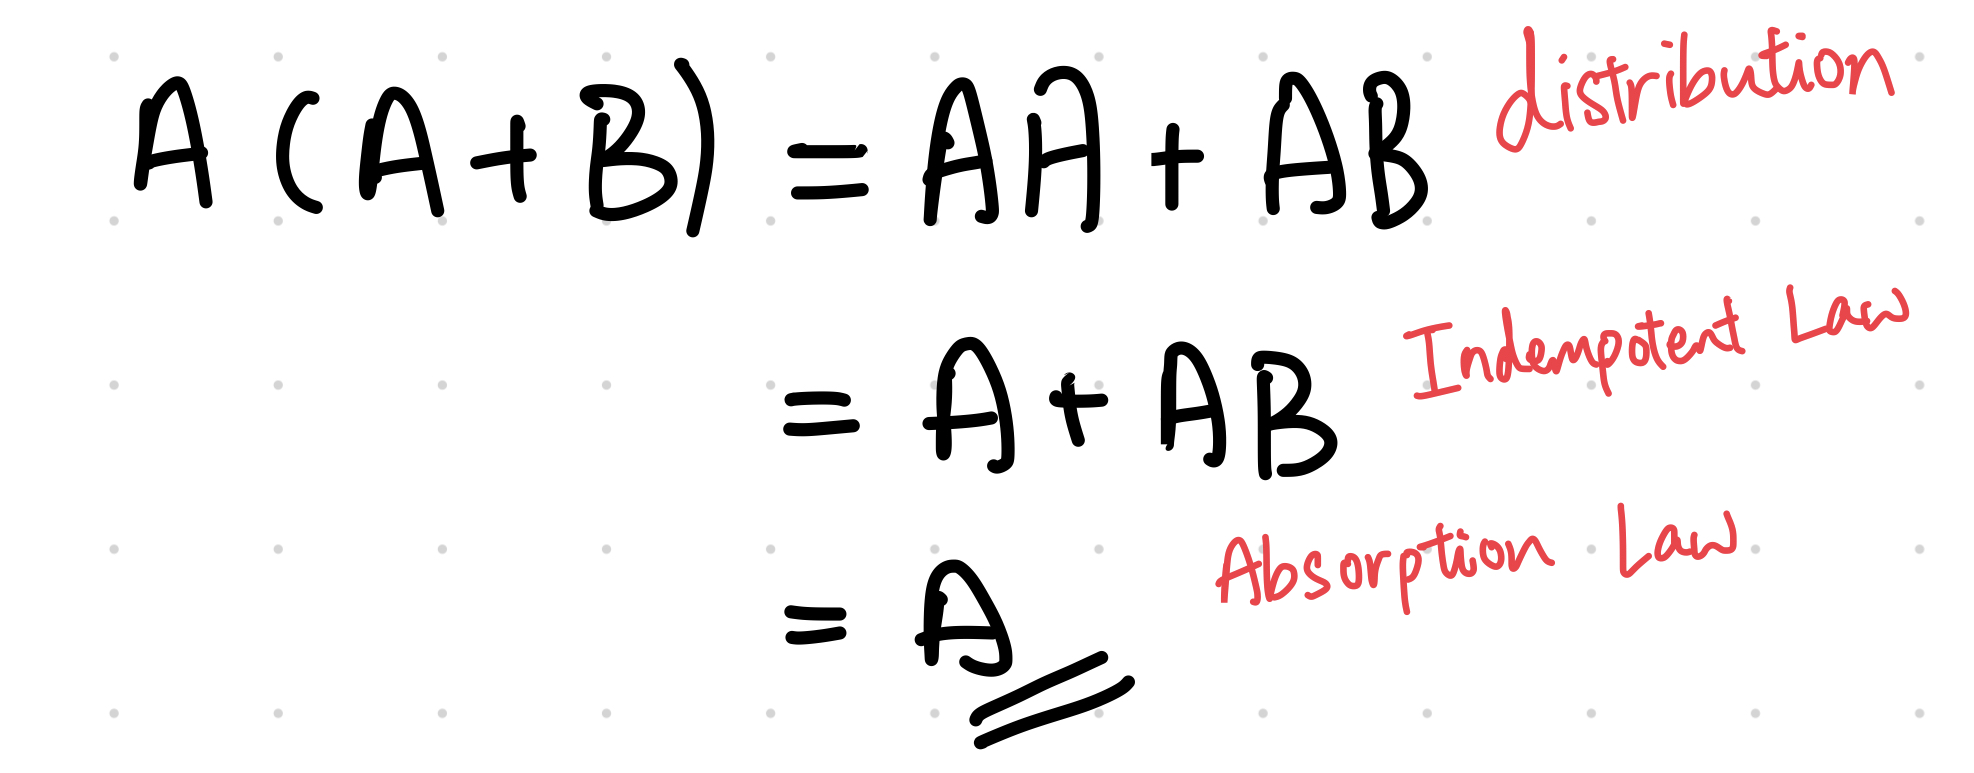 A (A + B) = AA + AB distribution
= A + AB Indempotent Law
= A Absorption Law